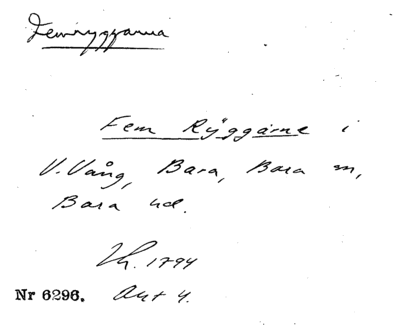 Femryggarna
Fem Ryggarne i
V. Vång, Bara, Bara sn,
Bara hd.
1794
Nr 6296. Akt 4.